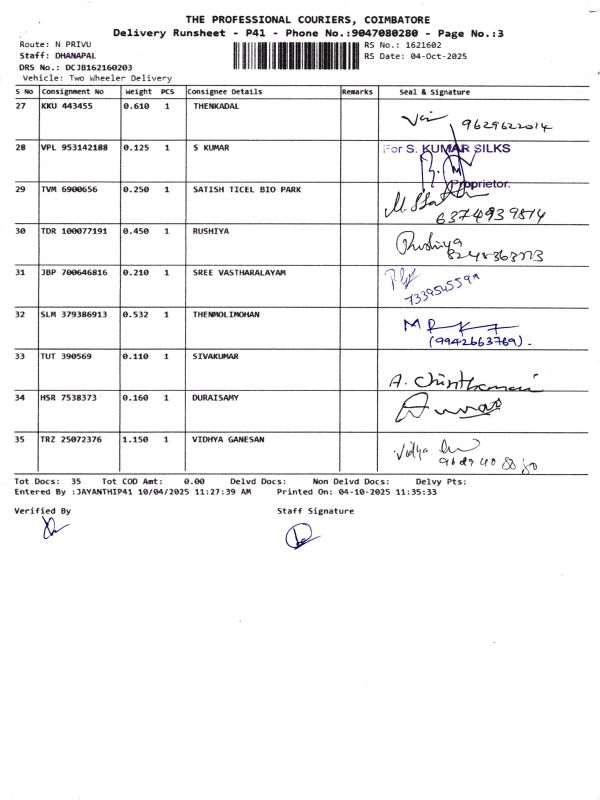 THE PROFESSIONAL COURIERS, COIMBATORE
Delivery Runsheet - P41 - Phone No.:9047080280 - Page No.:3
Route: N PRIVU RS No.: 1621602
Staff: DHANAPAL RS Date: 04-Oct-2025
DRS No.: DCJB162160203
Vehicle: Two Wheeler Delivery
S No Consignment No Weight PCS Consignee Details Remarks Seal & Signature
27 KKU 443455 0.610 1 THENKADAL
9629622014
28 VPL 953142188 0.125 1 S KUMAR For S. KUMAR SILKS
Proprietor.
29 TVM 6900656 0.250 1 SATISH TICEL BIO PARK
6374939814
30 TDR 100077191 0.450 1 RUSHIYA Rushiya
31 JBP 700646816 0.210 1 SREE VASTHARALAYAM
32 SLM 379386913 0.532 1 THENMOLIMOHAN
(9942663769).
33 TUT 390569 0.110 1 SIVAKUMAR
A.
34 HSR 7538373 0.160 1 DURAISAMY
35 TRZ 25072376 1.150 1 VIDHYA GANESAN Vidya
Tot Docs: 35 Tot COD Amt: 0.00 Delvd Docs: Non Delvd Docs: Delvy Pts:
Entered By :JAYANTHIP41 10/04/2025 11:27:39 AM Printed On: 04-10-2025 11:35:33
Verified By Staff Signature